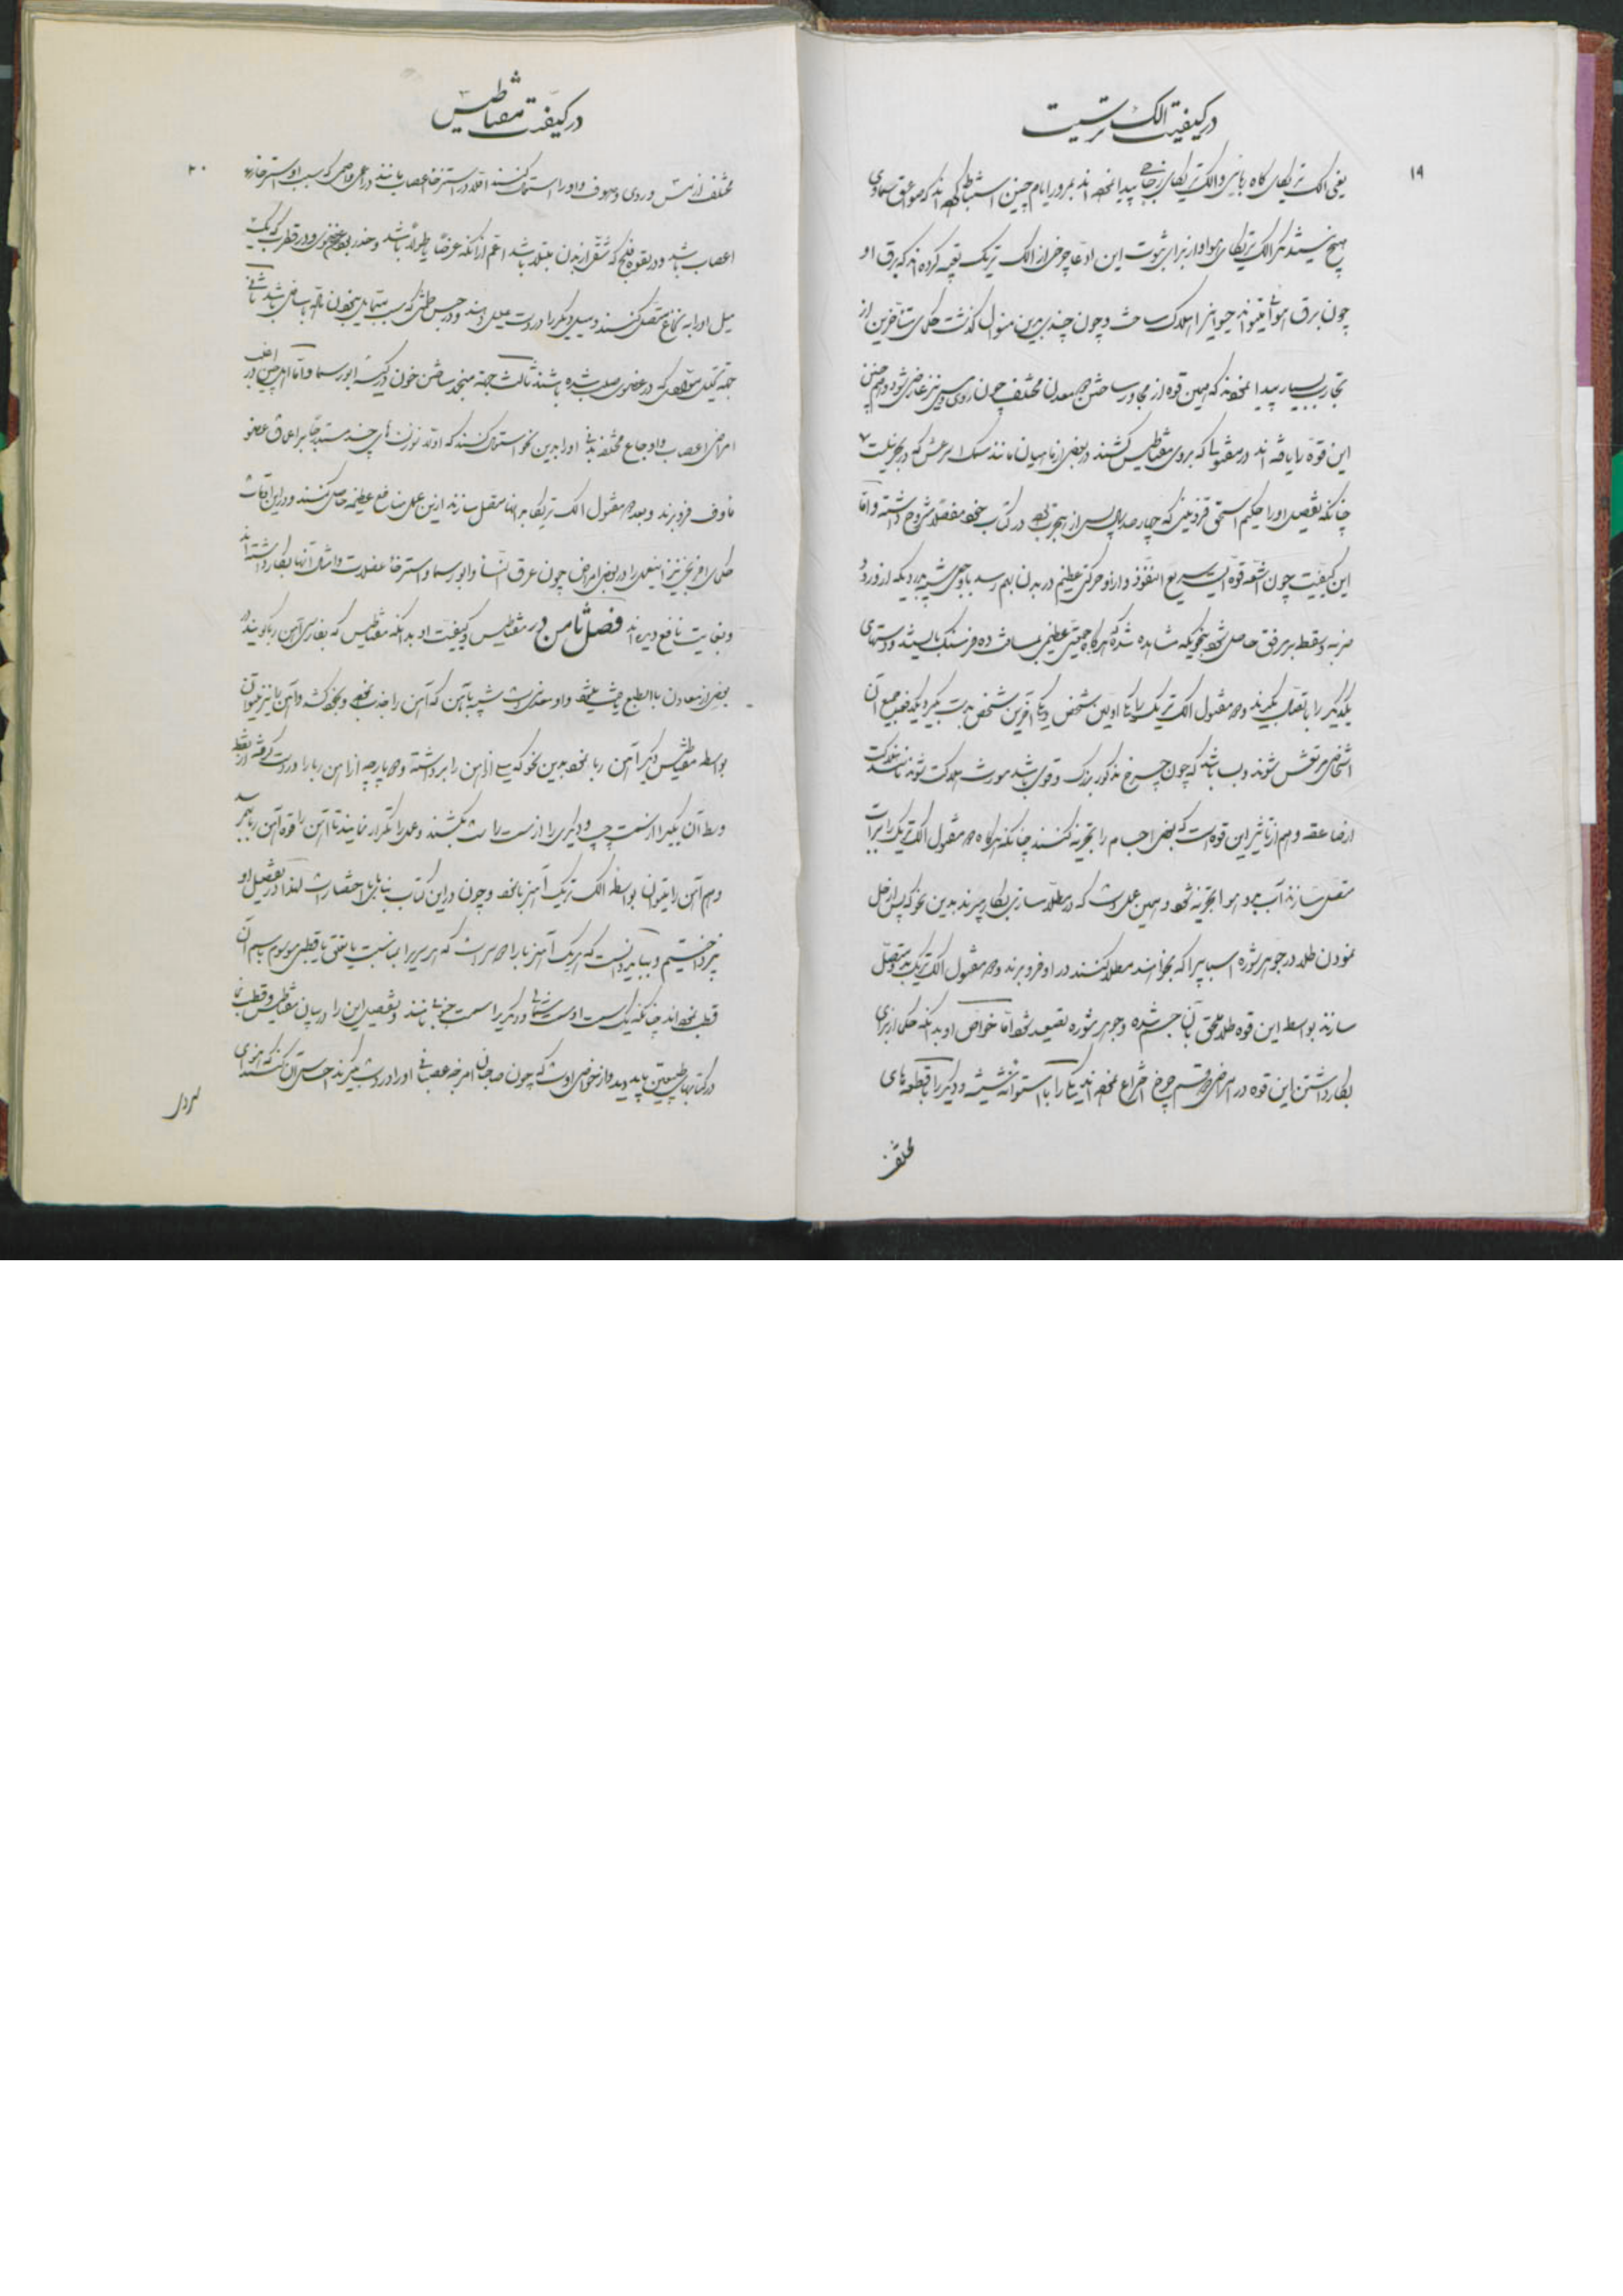 ۱۹
در کیفیت الک تریسیته
یعنی الک تریکای کاه ربایی و الک تریکای زجاجی پیدا نموده‌اند بمرور ایام چنین استنباط کرده‌اند که صواعق سماوی
هیچ نیستند مگر الک تریکای هوا و از برای ثبوت این ادعا چرخی از الک تریک تعبیه کرده‌اند که برق او
چون برق هوائی میتواند حیوانیرا هلاک ساخت و چون چندی بدین منوال گذشت حکمای متأخرین از
تجارب بسیار پیدا نمودند که همین قوه از مجاور ساختن دو معدن مختلف چون روی و مس نیز عارض شود و هم چنین
این قوه را یافته‌اند در مفتولها که بروی مغناطیس کشند و در بعضی از ماهیان مانند سمک رعش که در بحر نیلست
چنانکه تفصیل او را حکیم اسحق قزوینی که چهارصد سال پس از هجرت بوده در کتاب خود مفصلا مشروح داشته و اما
این کیفیت چون اشعه قوه ایست سریع النفوذ دارد و حرکتی عظیم در بدن بهم رسد با وجعی شبیه بدردیکه از ورود
ضربه و سقطه بر مرفق حاصل شود بنحویکه مشاهده شده که هرگاه جمعیتی عظیم بمسافت ده فرسنگ بایستند و دستهای
یکدیگر را باتصال بگیرند و دو مفتول الک تریک را یکی اولین شخص و یکی آخرین شخص بدست بگیرد یکدفعه جمیع آن
اشخاص مرتعش شوند و بسا باشد که چون چرخ مذکور بزرگ و قوی باشد مورث هلاکت شود مانند هلاکت
از صاعقه و هم از تأثیر این قوه است که بعضی اجسام را تجزیه کنند چنانکه هرگاه دو مفتول الک تریک را به آب
متصل سازند آب بدو هوا تجزیه شود و همین عمل است که در مطلا سازی بکار میبرند بدین نحو که پس از حل
نمودن طلا در جوهر شوره اسبابیرا که بخواهند مطلا کنند در او فرو برند و دو مفتول الک تریک بدو متصل
سازند بواسطه این قوه طلا ملحق بآن جسم شده و جوهر شوره تصعید شود اما خواص او بدانکه حکما از برای
بکار داشتن این قوه در امراض دو قسم چرخ اختراع نموده‌اند یکی را با استوانه شیشه و دیگر را با قطعه های
مختلف
۲۰
در کیفیت مغناطیس
مختلف از مس و روی و ماهوت و او را استعمال کنند اولا در استرخاء اعصاب مانند در امراضی که سبب او استرخاء
اعصاب باشد و در لقوه و فلج که شقی از بدن مبتلا باشد اعم از آنکه عرضا یا طولا باشد و خدر بعضی عضوی و در قطرب که یک
میل او را به نخاع متصل کنند و میل دیگر را در دست علیل دهند و در حبس طمثی که سبب بیخون نباشد ثانیا
جهة تحلیل موادی که در عضوی صلب شده باشند ثالث جهة منجمد ساختن خون در کیسه ابورسما و اما اهل چین در اغلب
امراض اعصاب و اوجاع مختلفه بدنی او را بدین نحو استعمال کنند که اولا سوزنهای چند مستدیرا بر اعماق عضو
مأوف فرو برند و بعد دو مفتول الک تریکا بر آنها متصل سازند ازین عمل منافع عظیمه حاصل کنند و در این اوقات
حکمای افرنج نیز اینعمل را در بعضی امراض چون عرق النسا و ابورسما و استرخاء عضلات و امثال آنها بکار داشته‌اند
و بغایت نافع دیده‌اند فصل ثامن در مغناطیس و کیفیت او بدانکه مغناطیس که بفارسی آهن ربا گویند در
بعضی از معادن بالطبع یافت میشود و او معدنی است شبیه بآهن که آهن را جذب نموده و بخود کشد و آهن را نیز میتوان
بواسطه مغناطیس دیگر آهن ربا نمود بدین نحو که میلی از آهن را برداشته و دو پارچه از آهن ربا را در دست گرفته از نقطه
وسط آن یکیرا از سمت چپ و دیگری را از سمت راست بکشند و عمل را تکرار نمایند تا آهن را قوه آهن ربا بهم رسد
و هم آهن را میتوان بواسطه الک تریک آهن ربا نمود و چون در این کتاب بنابر اختصار است لهذا در تفصیل او
نپرداختیم و بباید دانست که هر یک آهن ربا را دو سر است که هر سری را بمناسبت با افق یا قطبی موسوم باسم آن
قطب نموده‌اند چنانکه یک سمت او سمت شمالی و دیگریرا سمت جنوبی نامند و تفصیل این را در بیان مغناطیس و قطب نما
در کتابهای طبیعیین باید دید و از خواص اوست که چون صاحبان امزجه عصبانی او را در دست گیرند احساس آن کنند که هوای
سرد از